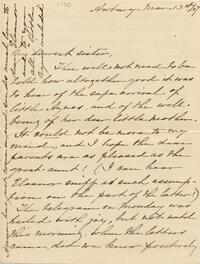 1170
Newbury Mar. 13th/17
My dearest sister,
You will not need to be
told how altogether good it was
to hear of the safe arrival of
little Agnes, and of the well-
being of her dear little mother.
It could not be more to my
mind, and I hope the dear
parents are as pleased as the
great-aunt! (I can hear
Eleanor sniff at such assump-
tion on the part of the latter!)
The telegram on Monday was
hailed with joy, but not until
this morning, when the letters
came, did we know positively